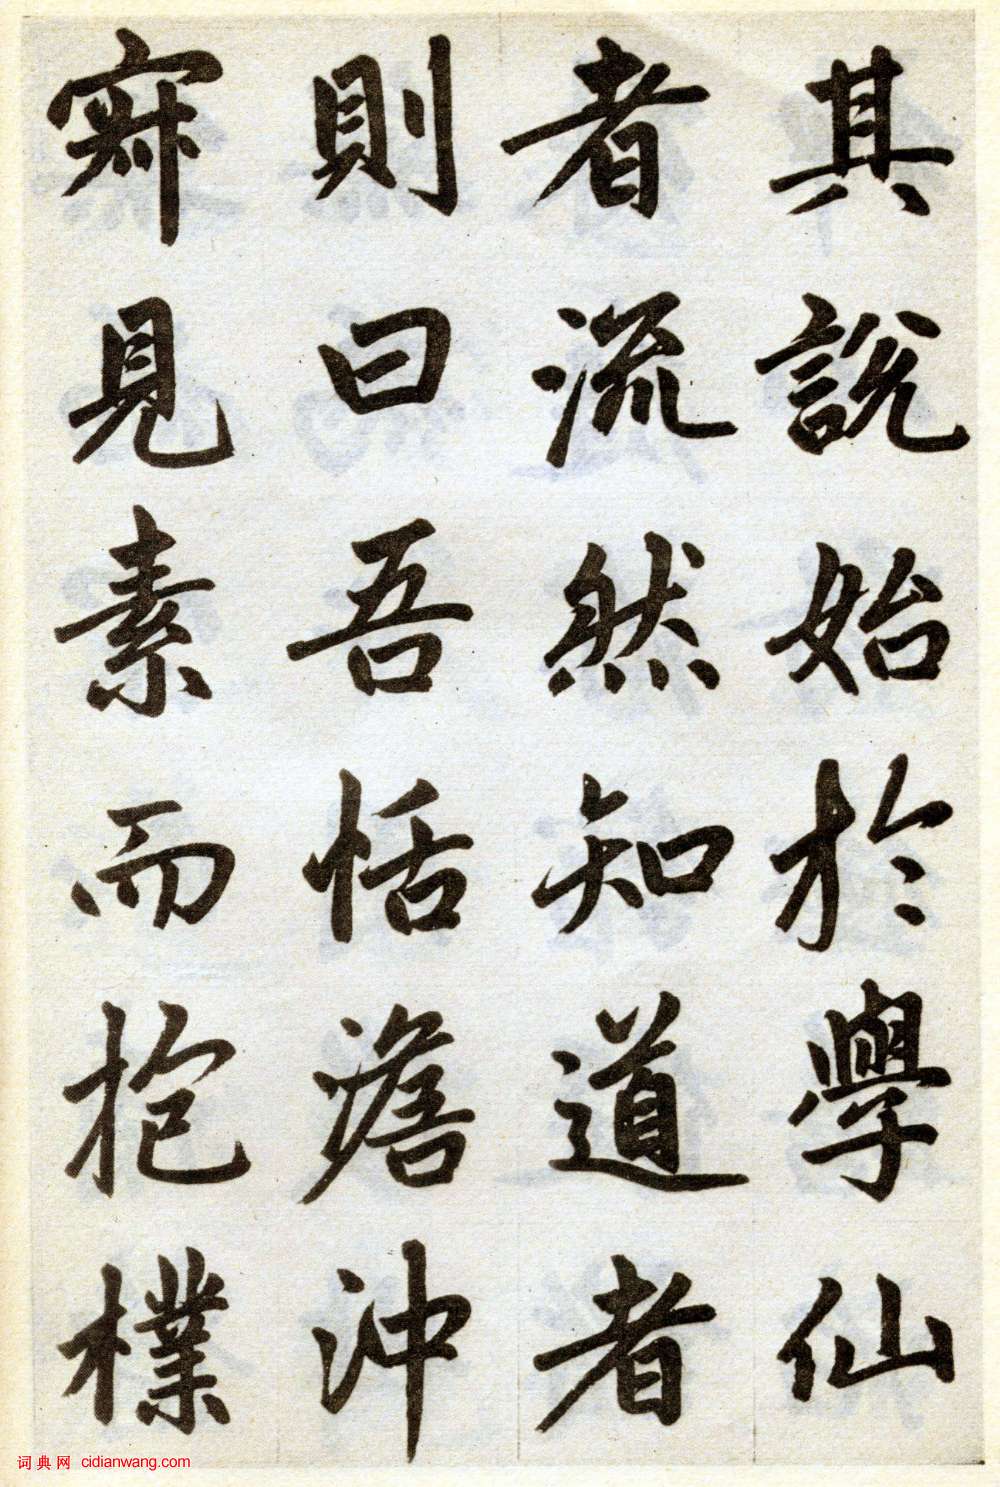 其說始於學仙
者流然知道者
則曰吾恬澹沖
寂見素而抱樸
词典网 cidianwang.com